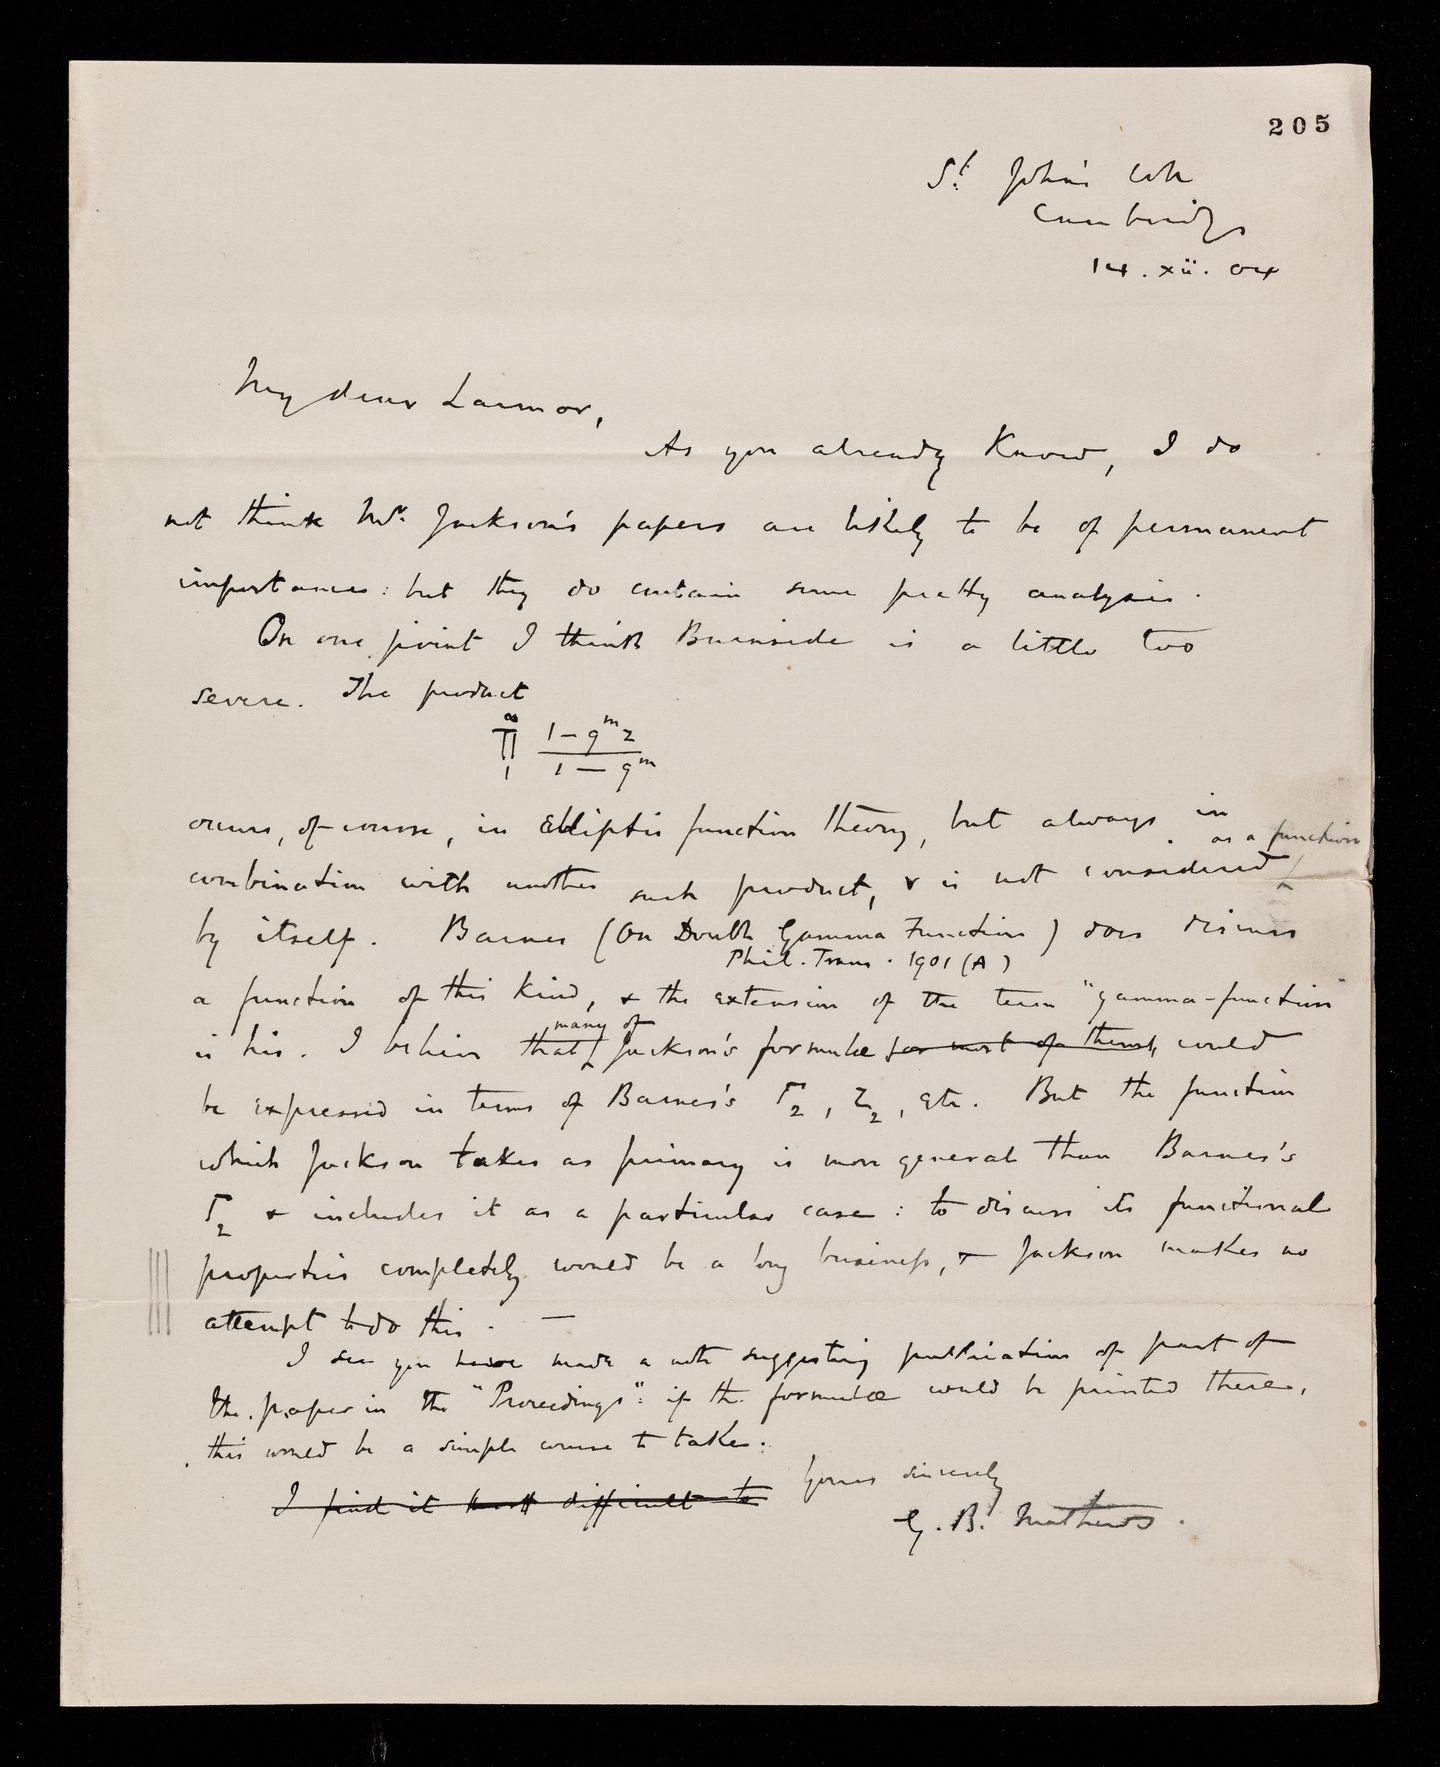 205
St. John's Coll
Cambridge
14 . xii . 04
My dear Larmor,
As you already know, I do
not think Mr. Jackson's papers are likely to be of permanent
importance: but they do contain some pretty analysis.
On one point I think Burnside is a little too
severe. The product
∞
∏ (1 - q^m z) / (1 - q^m)
1
occurs, of course, in elliptic function theory, but always in
as a function
combination with another such product, & is not considered
by itself. Barnes (On Double Gamma Function) does discuss
Phil. Trans. 1901 (A)
a function of this kind, & the extension of the term "gamma-function"
many of
is his. I believe that Jackson's formulæ (or most of them), could
be expressed in terms of Barnes's Γ₂, Z₂, etc. But the function
which Jackson takes as primary is more general than Barnes's
Γ₂ & includes it as a particular case: to discuss its functional
properties completely would be a long business, & Jackson makes no
attempt to do this. —
I see you have made a note suggesting publication of part of
the paper in the "Proceedings": if the formulæ could be printed there,
this would be a simple course to take.
Yours sincerely
I find it most difficult to
G. B. Mathews.